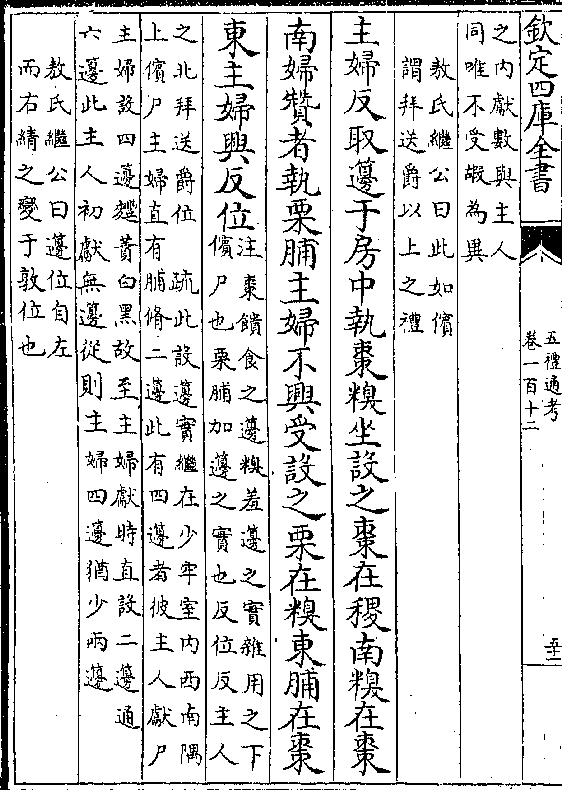 欽定四庫全書
五禮通考
卷一百十二
之内獻數與主人
同唯不受嘏為異
敖氏繼公曰此如儐
謂拜送爵以上之禮
主婦反取籩于房中執棗糗坐設之棗在稷南糗在棗
南婦贊者執栗脯主婦不興受設之栗在糗東脯在棗
東主婦興反位
注棗饋食之籩糗羞籩之實雜用之下
儐尸也栗脯加籩之實也反位反主人
之北拜送爵位 疏此設籩實繼在少牢室内西南隅
上儐尸主婦直有脯脩二籩此有四籩者彼主人獻尸
主婦設四籩麷蕡白黑故至主婦獻時直設二籩通
六籩此主人初獻無籩從則主婦四籩猶少兩籩
敖氏繼公曰籩位自左
而右綪之變于敦位也